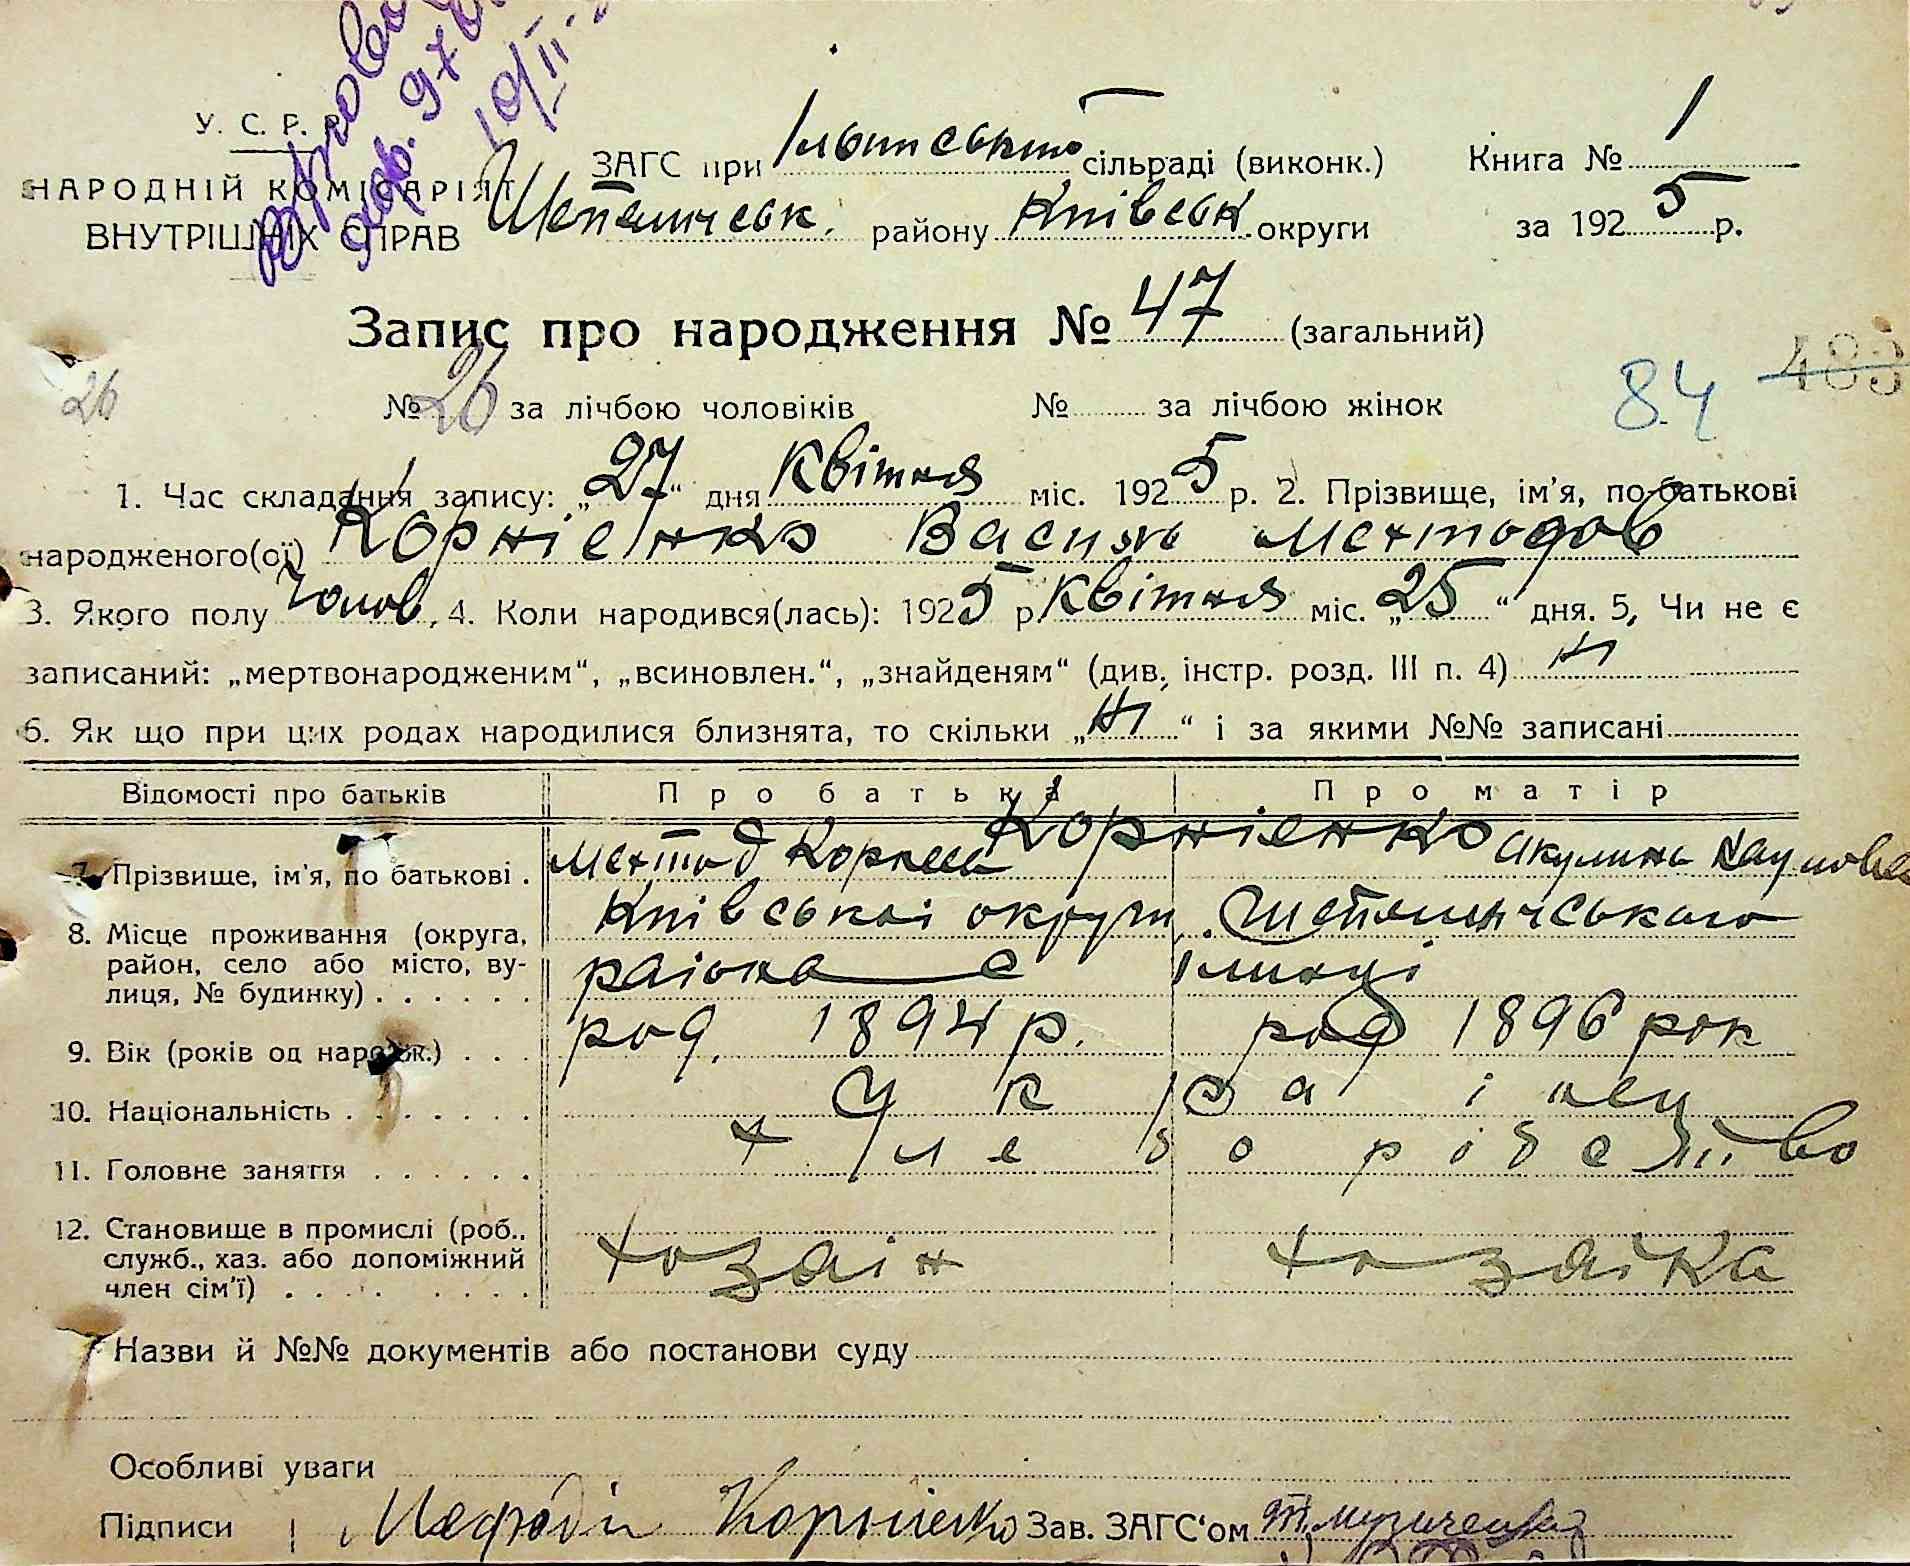 У. С. Р. Р.
НАРОДНІЙ КОМІСАРІЯТ
ВНУТРІШНІХ СПРАВ
ЗАГС при сільраді (виконк.)
району Київськ. округи
Книга № 1
за 1925 р.
Запис про народження № 47 (загальний)
26
№ 26 за лічбою чоловіків № за лічбою жінок
84 483
1. Час складання запису: „27“ дня Квітня міс. 1925 р. 2. Прізвище, ім'я, по-батькові
народженого(ої) Корнієнко Василь Методов
3. Якого полу Чолов. 4. Коли народився(лась): 1925 р. Квітня міс. „25“ дня. 5. Чи не є
записаний: „мертвонародженим“, „всиновлен.“, „знайденям“ (див. інстр. розд. III п. 4) ні
6. Як що при цих родах народилися близнята, то скільки „ні“ і за якими №№ записані
Відомості про батьків Про батька Про матір
Корнієнко
7. Прізвище, ім'я, по батькові . Метод Акулина Наумовна
8. Місце проживання (округа, район, село або місто, вулиця, № будинку) . . . . . . Київської округи,
района с
9. Вік (років од народж.) . . . род. 1894 р. род 1896 рок
10. Національність . . . . . . . Українец
11. Головне заняття . . . . . . хлеборібство
12. Становище в промислі (роб., служб., хаз. або допоміжний член сім'ї) . . . . . . . . хозаін хозайка
Назви й №№ документів або постанови суду
Особливі уваги
Підписи Мефодій Корнієнко Зав. ЗАГС'ом